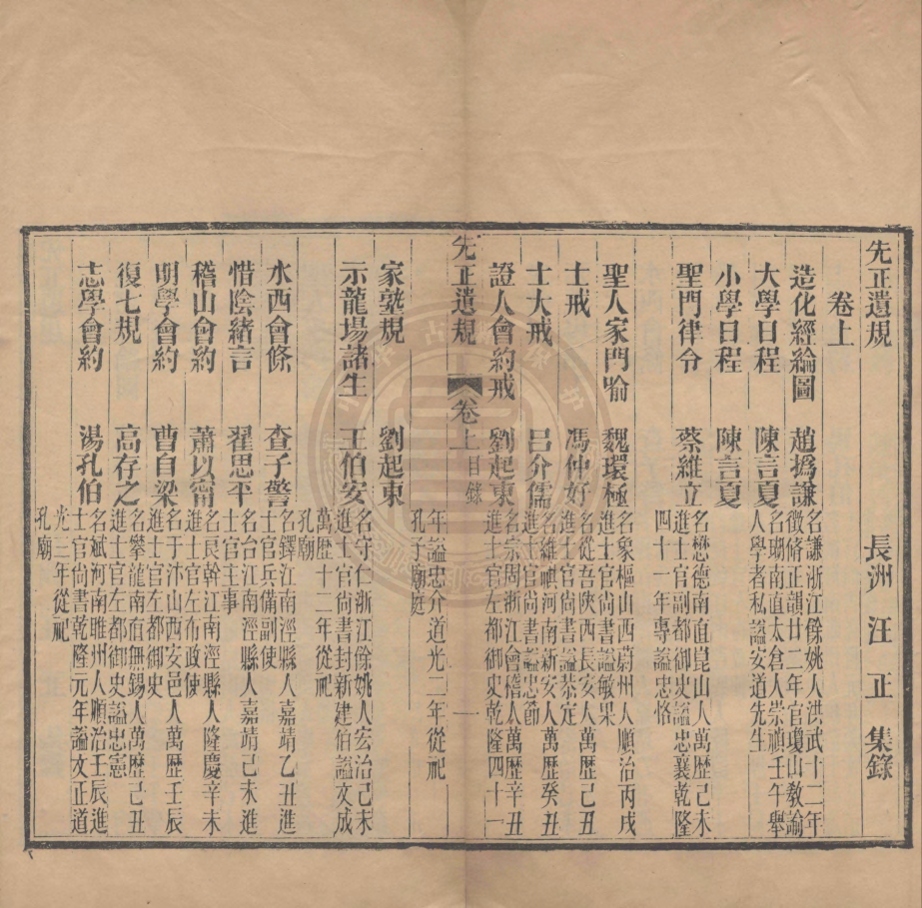 先正遺規　長洲　汪　正　集錄
卷上
造化經綸圖　趙撝謙　名謙浙江餘姚人洪武十二年
徵脩正韻廿二年官瓊山教諭
大學日程　陳言夏　名瑚南直太倉人崇禎壬午舉
人學者私謚安道先生
小學日程　陳言夏
聖門律令　蔡維立　名懋德南直崑山人萬歷己未
進士官副都御史謚忠襄乾隆
四十一年專謚忠恪
聖人家門喻　魏環極　名象樞山西蔚州人順治丙戌
進士官尚書謚敏果
士戒　馮仲好　名從吾陝西長安人萬歷己丑
進士官尚書謚恭定
士大戒　呂介儒　名維祺河南新安人萬歷癸丑
進士官尚書謚忠節
證人會約戒　劉起東　名宗周浙江會稽人萬歷辛丑
進士官左都御史乾隆四十一
先正遺規　卷上　目錄　一
年謚忠介道光二年從祀
孔子廟庭
家塾規　劉起東
示龍場諸生　王伯安　名守仁浙江餘姚人宏治己未
進士官尚書封新建伯謚文成
萬歷十二年從祀
孔廟
水西會條　查子警　名鐸江南涇縣人嘉靖乙丑進
士官兵備副使
惜陰緒言　翟思平　名台江南涇縣人嘉靖己未進
士官主事
稽山會約　蕭以甯　名良幹江南涇縣人隆慶辛未
進士官左布政使
明學會約　曹自梁　名于汴山西安邑人萬歷壬辰
進士官左都御史
復七規　高存之　名攀龍南直無錫人萬歷己丑
進士官左都御史謚忠憲
志學會約　湯孔伯　名斌河南睢州人順治壬辰進
士官尚書乾隆元年謚文正道
光三年從祀
孔廟